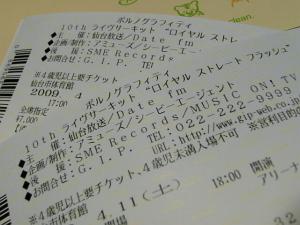 ean.
ポルノグラフィティ
10th ライヴサーキット "ロイヤル ストレ
▶主 催:仙台放送/Date fm
▶企画/制作:アミューズ/シービーエー
▶後 援:SME Records
▶お問合せ:G.I.P. TEL
※4歳児以上要チケット
仙台市体育館
2009
17:00
全席指定
¥7,000
ポルノグラフィティ
10th ライヴサーキット "ロイヤル ストレート フラッシュ"
▶主 催:仙台放送/Date fm
▶企画/制作:アミューズ/シービーエージェント
▶後 援:SME Records/MUSIC ON! TV
▶お問合せ:G.I.P. TEL:022-222-9999
※4歳児以上要チケット、4歳児未満入場不可
市体育館
4.11(土)
18:00 開演
アリーナ
開場